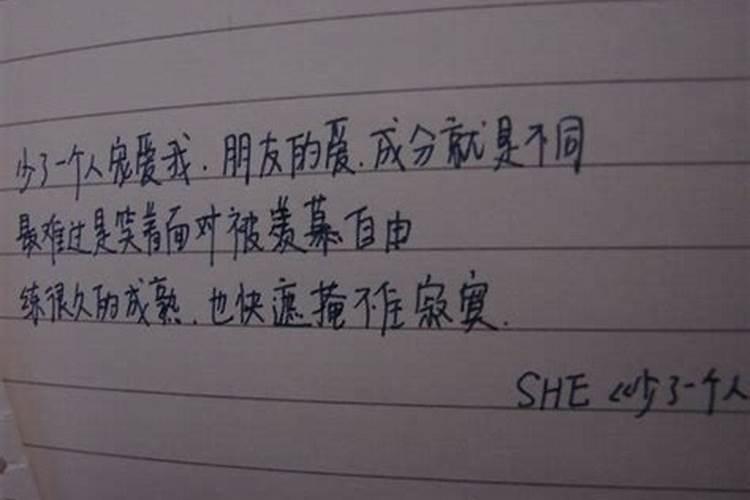 少了一个人宠爱我.朋友的爱.成分就是不同
最难过是笑着面对被羡慕自由
练很久的成熟.也快遮掩不住寂寞.
SHE《少了一个人